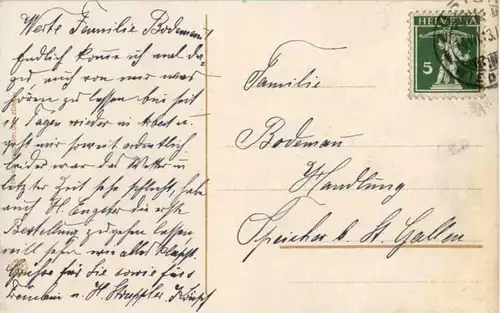 Werte Familie Bodemann!
Endlich komme ich mal da-
zu auch von mir was
hören zu lassen bin seit
14 Tagen wieder in Arbeit u.
geht mir soweit ordentlich
leider war das Wetter in
letzter Zeit sehr schlecht, habe
auch H. Engster die erste
Bestellung zugehen lassen
will sehen wie alles klappt.
Grüsse für Sie sowie für
u. H.
HELVETIA
5
Familie
Bodeman
Handlung
Speicher b. St. Gallen